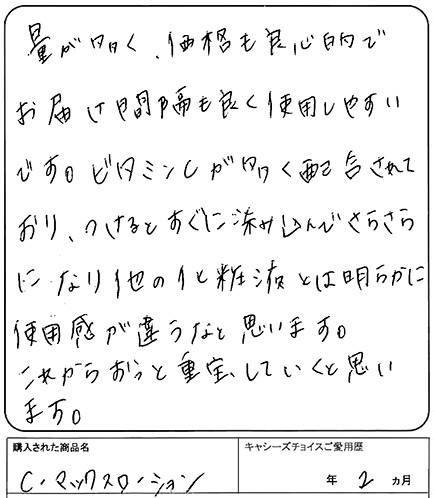 量が多く、価格も良心的で
お届け間隔も良く使用しやすい
です。ビタミンCが多く配合されて
おり、つけるとすぐに染み込んでさらさら
になり他の化粧液とは明らかに
使用感が違うなと思います。
これからずっと重宝していくと思い
ます。
購入された商品名
キャシーズチョイスご愛用歴
C・マックスローション
年 2 ヵ月